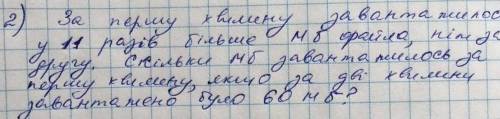 2) За першу хвилину завантажилось
у 11 разів більше Мб файла, ніж за
другу. Скільки Мб завантажилось за
першу хвилину, якщо за дві хвилини
завантажено було 60 Мб?